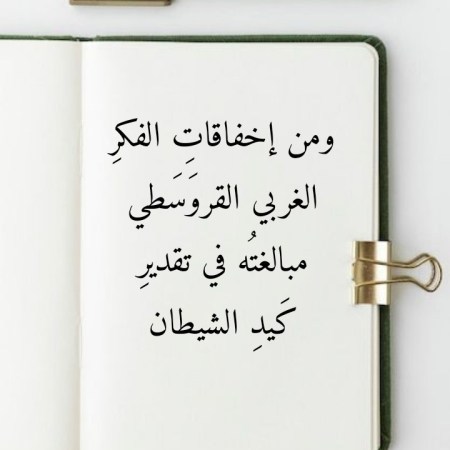 ومن إخفاقاتِ الفكرِ
الغربي القروَسَطي
مبالغتُه في تقديرِ
كَيدِ الشيطان